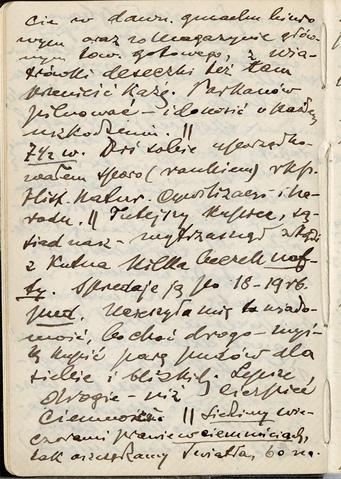 cie w dawn. gmachu biuro
wym oraz w magazynie głów
nym tow. gotowego, z wia
trówki deseczki też tam
przenieść każę. Parkanów
pilnować – i donosić o każdem
uszkodzeniu. ||
7½ w. Dziś sobie uporządko-
wałem sporo (rankiem) rkp.
Hist. Natur. Cywilizacyi i Na-
rodu. || Tutejszy kupiec, są-
siad nasz – wytrzasnął skądś
z Kutna kilka beczek naf-
ty. Sprzedaje ją po 18–19 rb.
pud. Ucieszyła nię ta wiado-
mość, bo choć drogo – myś-
lę kupić parę pudów dla
siebie i bliskich. Lepsze
drogie – niż cierpieć
ciemności. || Siedzimy wie-
czorami prawie w ciemnościach,
tak oszczędzamy światła, bo na-